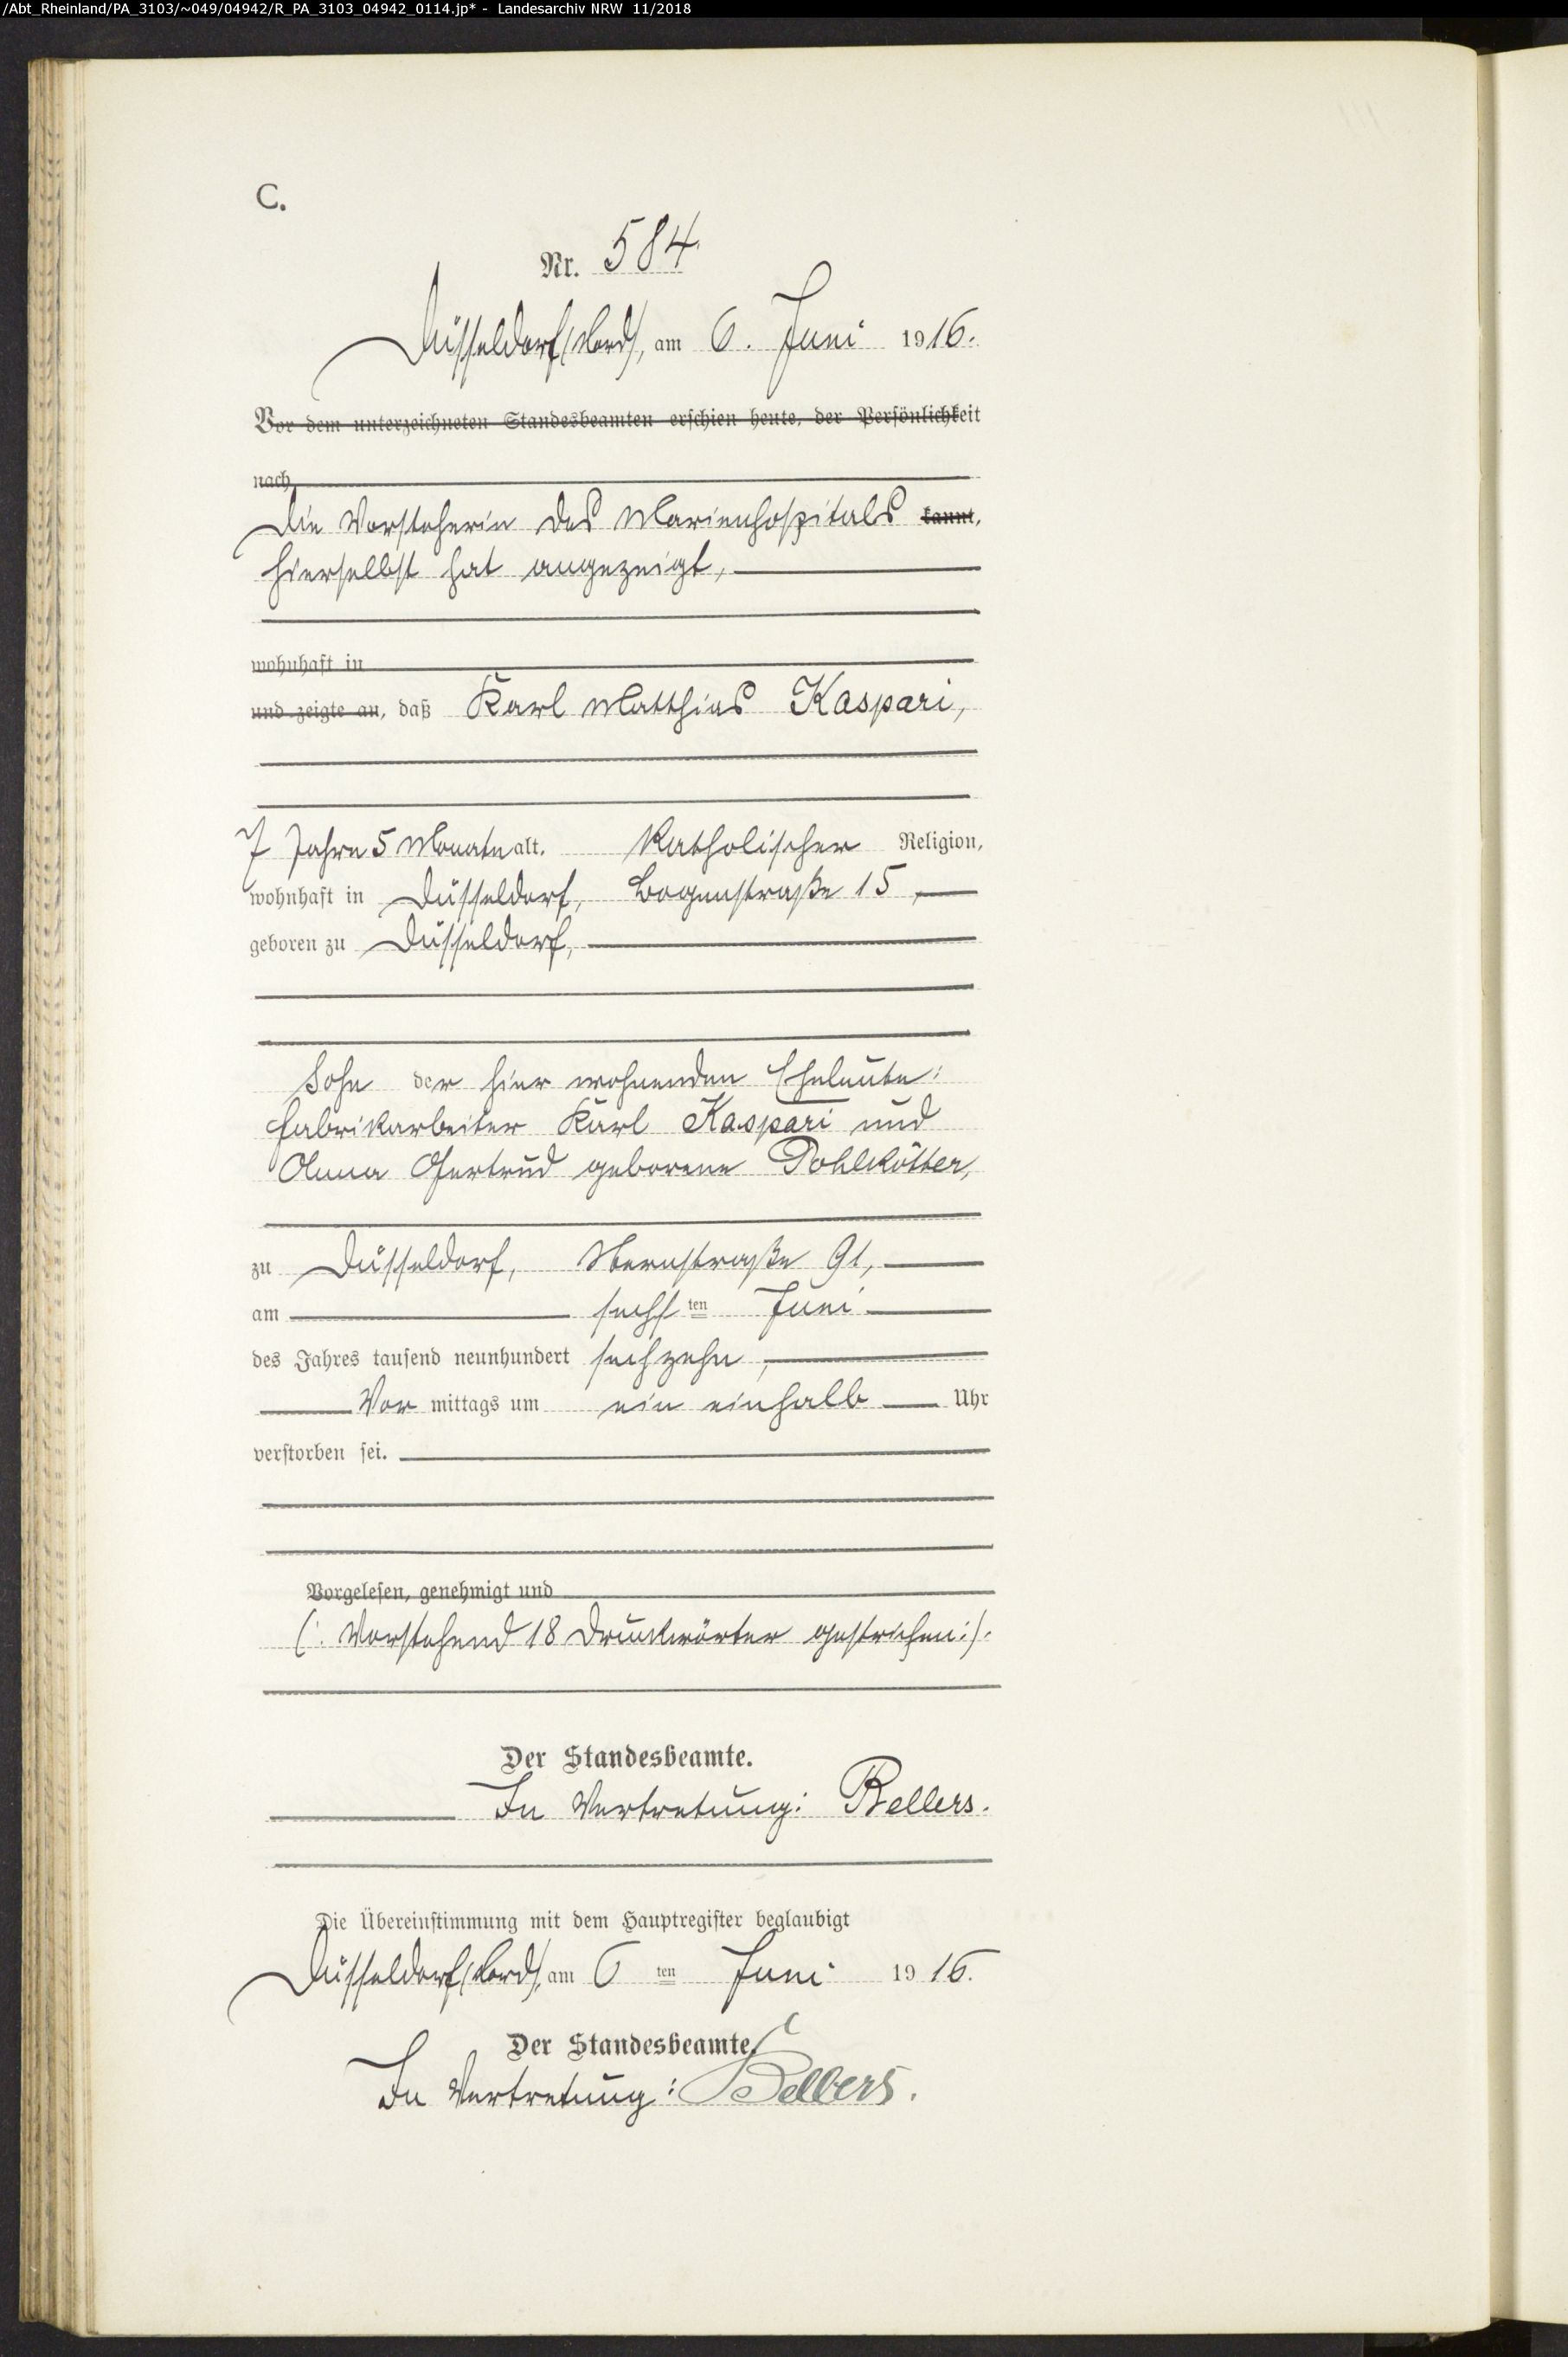 /Abt_Rheinland/PA_3103/~049/04942/R_PA_3103_04942_0114.jp* - Landesarchiv NRW 11/2018
C.
Nr. 584
Düsseldorf (Nord), am 6. Juni 1916.
Vor dem unterzeichneten Standesbeamten erschien heute, der Persönlichkeit
nach
Die Vorsteherin des Marienhospitals kannt,
hierselbst hat angezeigt,
wohnhaft in
und zeigte an, daß Karl Matthias Kaspari,
7 Jahre 5 Monate alt, katholischer Religion,
wohnhaft in Düsseldorf, Bogenstraße 15,
geboren zu Düsseldorf,
Sohn der hier wohnenden Eheleute:
Fabrikarbeiter Karl Kaspari und
Anna Gertrud geborene Pohlkötter,
zu Düsseldorf, Sternstraße 91,
am sechsten Juni
des Jahres tausend neunhundert sechzehn,
Vormittags um ein einhalb Uhr
verstorben sei.
Vorgelesen, genehmigt und
(: Vorstehend 18 Druckwörter gestrichen :).
Der Standesbeamte.
In Vertretung: Bellers.
Die Übereinstimmung mit dem Hauptregister beglaubigt
Düsseldorf (Nord), am 6ten Juni 1916.
Der Standesbeamte.
In Vertretung: Bellers.